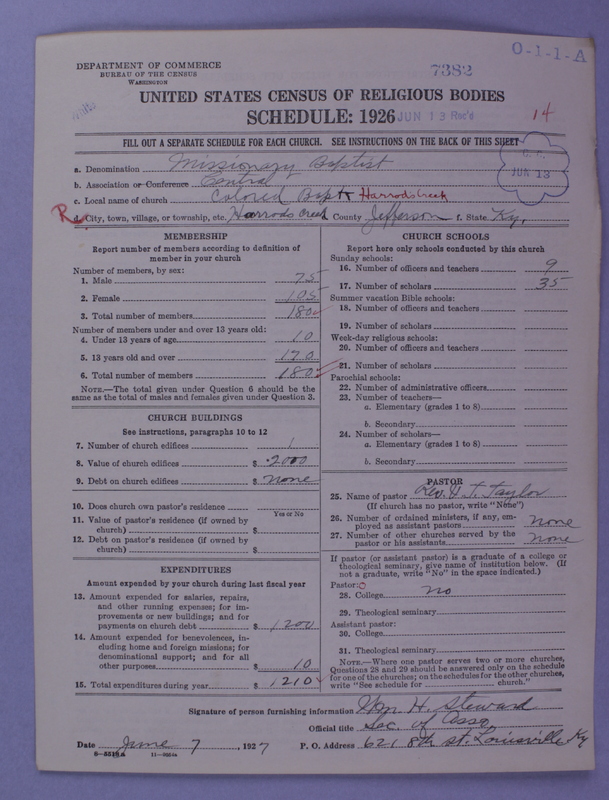 O-1-1-A
DEPARTMENT OF COMMERCE
BUREAU OF THE CENSUS
WASHINGTON
7382
UNITED STATES CENSUS OF RELIGIOUS BODIES
SCHEDULE: 1926
JUN 13 Rec'd
14
FILL OUT A SEPARATE SCHEDULE FOR EACH CHURCH. SEE INSTRUCTIONS ON THE BACK OF THIS SHEET
JUN 13
a. Denomination Missionary Baptist
b. Association or Conference Central
c. Local name of church Colored Bapt Harrods Creek
R d. City, town, village, or township, etc. Harrods Creek County Jefferson f. State Ky.
MEMBERSHIP
Report number of members according to definition of member in your church
Number of members, by sex:
1. Male 75
2. Female 105
3. Total number of members 180
Number of members under and over 13 years old:
4. Under 13 years of age 10
5. 13 years old and over 170
6. Total number of members 180
NOTE.—The total given under Question 6 should be the same as the total of males and females given under Question 3.
CHURCH BUILDINGS
See instructions, paragraphs 10 to 12
7. Number of church edifices 1
8. Value of church edifices $ 2000
9. Debt on church edifices $ none
10. Does church own pastor's residence
Yes or No
11. Value of pastor's residence (if owned by church) $
12. Debt on pastor's residence (if owned by church) $
EXPENDITURES
Amount expended by your church during last fiscal year
13. Amount expended for salaries, repairs, and other running expenses; for improvements or new buildings; and for payments on church debt $ 1200
14. Amount expended for benevolences, including home and foreign missions; for denominational support; and for all other purposes $ 10
15. Total expenditures during year $ 1210
CHURCH SCHOOLS
Report here only schools conducted by this church
Sunday schools:
16. Number of officers and teachers 9
17. Number of scholars 35
Summer vacation Bible schools:
18. Number of officers and teachers
19. Number of scholars
Week-day religious schools:
20. Number of officers and teachers
21. Number of scholars
Parochial schools:
22. Number of administrative officers
23. Number of teachers—
a. Elementary (grades 1 to 8)
b. Secondary
24. Number of scholars—
a. Elementary (grades 1 to 8)
b. Secondary
PASTOR
25. Name of pastor Rev. J. T. Taylor
(If church has no pastor, write "None")
26. Number of ordained ministers, if any, employed as assistant pastors none
27. Number of other churches served by the pastor or his assistants None
If pastor (or assistant pastor) is a graduate of a college or theological seminary, give name of institution below. (If not a graduate, write "No" in the space indicated.)
Pastor:
28. College no
29. Theological seminary
Assistant pastor:
30. College
31. Theological seminary
NOTE.—Where one pastor serves two or more churches, Questions 28 and 29 should be answered only on the schedule for one of the churches; on the schedules for the other churches, write "See schedule for church."
Signature of person furnishing information Wm H. Steward
Official title Sec. of Asso.
Date June 7, 1927 P. O. Address 621 8th st. Louisville, Ky